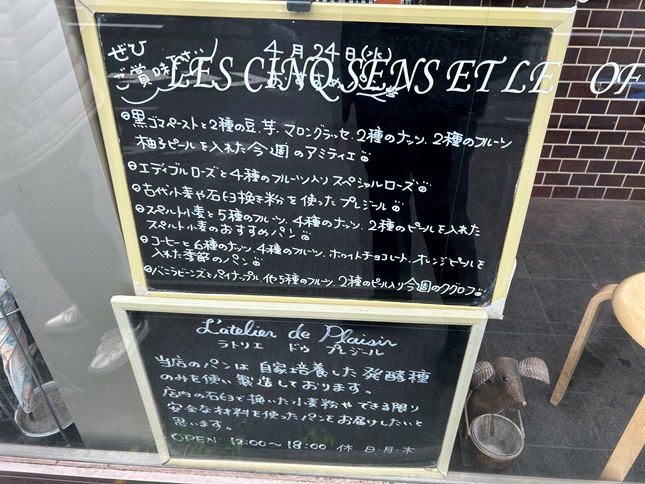 ぜひ
ご賞味下さい
4月24日(水)
おすすめパン
LES CINQ SENS ET LE OF
黒ゴマペーストと2種の豆、芋、マロングラッセ、2種のナッツ、2種のフルーツ
柚子ピールを入れた今週のアミティエ
エディブルローズと4種のフルーツ入りスペシャルローズ
古代小麦や石臼挽き粉を使ったプレジール
スペルト小麦と5種のフルーツ、4種のナッツ、2種のピールを入れた
スペルト小麦のおすすめパン
コーヒーと6種のナッツ、4種のフルーツ、ホワイトチョコレート、オレンジピールを
入れた季節のパン
バニラビーンズとパイナップル、他5種のフルーツ、2種のピール入り今週のクグロフ
L'atelier de Plaisir
ラトリエ ドゥ プレジール
当店のパンは自家培養した発酵種
のみを使い製造しております。
店内の石臼で挽いた小麦粉やできる限り
安全な材料を使ったパンをお届けしたいと
思います。
OPEN 12:00〜18:00 休 日・月・木